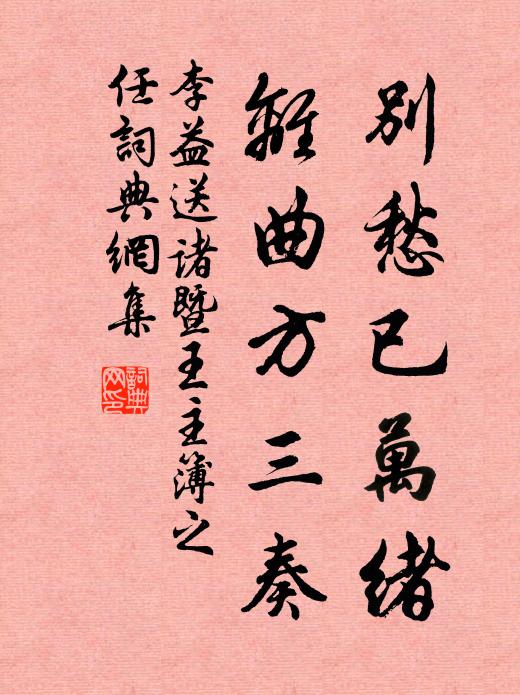 別愁已萬緒
離曲方三奏
李益送諸暨王主簿之
任詞典網集
詞典
网印